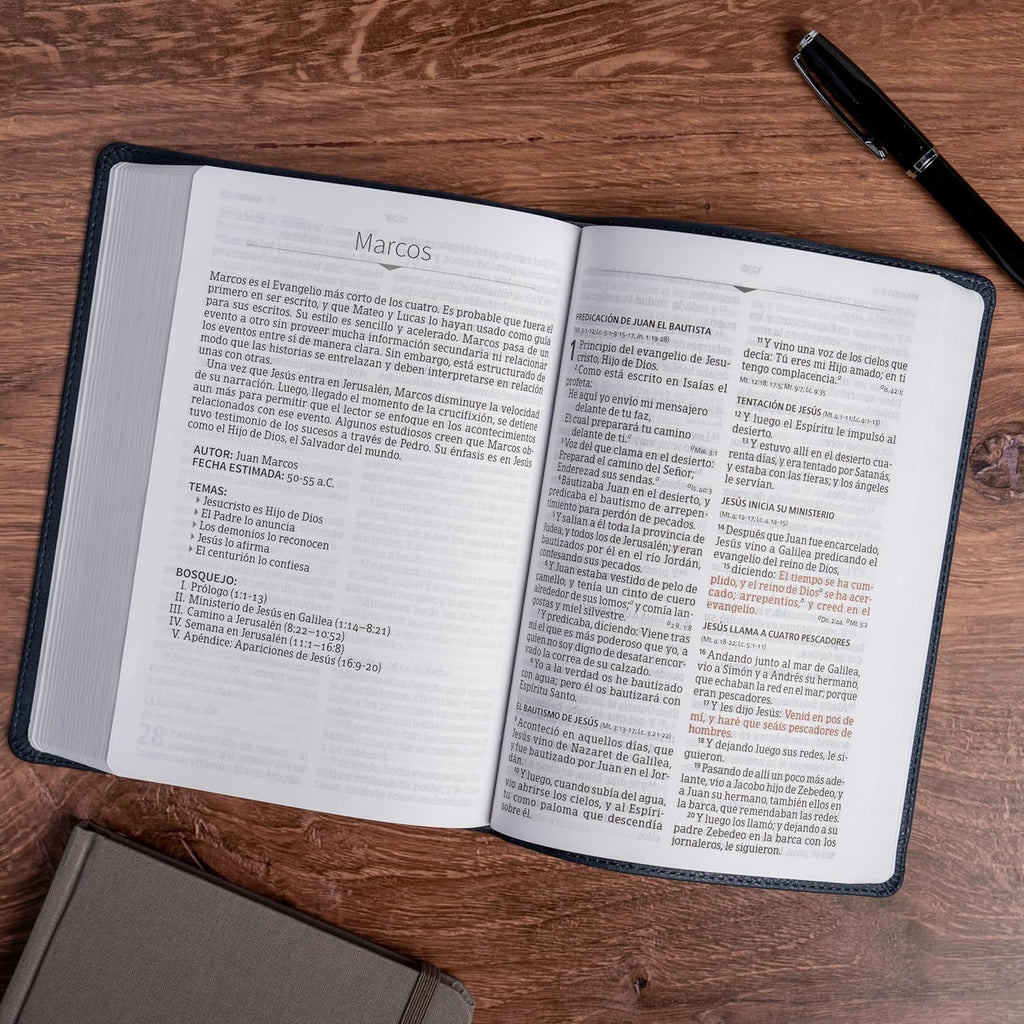 Marcos
Marcos es el Evangelio más corto de los cuatro. Es probable que fuera el
primero en ser escrito, y que Mateo y Lucas lo hayan usado como guía
para sus escritos. Su estilo es sencillo y acelerado. Marcos pasa de un
evento a otro sin proveer mucha información secundaria ni relacionar
los eventos entre sí de manera clara. Sin embargo, está estructurado de
modo que las historias se entrelazan y deben interpretarse en relación
unas con otras.
Una vez que Jesús entra en Jerusalén, Marcos disminuye la velocidad
de su narración. Luego, llegado el momento de la crucifixión, se detiene
aun más para permitir que el lector se enfoque en los acontecimientos
relacionados con ese evento. Algunos estudiosos creen que Marcos ob-
tuvo testimonio de los sucesos a través de Pedro. Su énfasis es en Jesús
como el Hijo de Dios, el Salvador del mundo.
AUTOR: Juan Marcos
FECHA ESTIMADA: 50-55 a.C.
TEMAS:
Jesucristo es Hijo de Dios
El Padre lo anuncia
Los demonios lo reconocen
Jesús lo afirma
El centurión lo confiesa
BOSQUEJO:
I. Prólogo (1:1-13)
II. Ministerio de Jesús en Galilea (1:14–8:21)
III. Camino a Jerusalén (8:22–10:52)
IV. Semana en Jerusalén (11:1–16:8)
V. Apéndice: Apariciones de Jesús (16:9-20)
28
PREDICACIÓN DE JUAN EL BAUTISTA
(Mt.3:1-12; Lc.3:1-9,15-17; Jn. 1:19-28)
1 Principio del evangelio de Jesu-
cristo, Hijo de Dios.
2 Como está escrito en Isaías el
profeta:
He aquí yo envío mi mensajero
delante de tu faz,
El cual preparará tu camino
delante de ti.a
a Mal. 3:1
3 Voz del que clama en el desierto:
Preparad el camino del Señor;
Enderezad sus sendas.a
a Is. 40:3
4 Bautizaba Juan en el desierto, y
predicaba el bautismo de arrepen-
timiento para perdón de pecados.
5 Y salían a él toda la provincia de
Judea, y todos los de Jerusalén; y eran
bautizados por él en el río Jordán,
confesando sus pecados.
6 Y Juan estaba vestido de pelo de
camello, y tenía un cinto de cuero
alrededor de sus lomos;a y comía lan-
gostas y miel silvestre.
a 2 R. 1:8
7 Y predicaba, diciendo: Viene tras
mí el que es más poderoso que yo, a
quien no soy digno de desatar encor-
vado la correa de su calzado.
8 Yo a la verdad os he bautizado
con agua; pero él os bautizará con
Espíritu Santo.
EL BAUTISMO DE JESÚS (Mt. 3:13-17; Lc. 3:21-22)
9 Aconteció en aquellos días, que
Jesús vino de Nazaret de Galilea,
y fue bautizado por Juan en el Jor-
dán.
10 Y luego, cuando subía del agua,
vio abrirse los cielos, y al Espíri-
tu como paloma que descendía
sobre él.
11 Y vino una voz de los cielos que
decía: Tú eres mi Hijo amado; en ti
tengo complacencia.a
a Is. 42:1;
Mt. 12:18; 17:5; Mr. 9:7; Lc. 9:35
TENTACIÓN DE JESÚS (Mt. 4:1-11; Lc. 4:1-13)
12 Y luego el Espíritu le impulsó al
desierto.
13 Y estuvo allí en el desierto cua-
renta días, y era tentado por Satanás,
y estaba con las fieras; y los ángeles
le servían.
JESÚS INICIA SU MINISTERIO
(Mt. 4:12-17; Lc. 4:14-15)
14 Después que Juan fue encarcelado,
Jesús vino a Galilea predicando el
evangelio del reino de Dios,
15 diciendo: El tiempo se ha cum-
plido, y el reino de Diosa se ha acer-
cado; arrepentíos,b y creed en el
evangelio.
a Dn. 2:44 b Mt. 3:2
JESÚS LLAMA A CUATRO PESCADORES
(Mt. 4:18-22; Lc. 5:1-11)
16 Andando junto al mar de Galilea,
vio a Simón y a Andrés su hermano,
que echaban la red en el mar; porque
eran pescadores.
17 Y les dijo Jesús: Venid en pos de
mí, y haré que seáis pescadores de
hombres.
18 Y dejando luego sus redes, le si-
guieron.
19 Pasando de allí un poco más ade-
lante, vio a Jacobo hijo de Zebedeo, y
a Juan su hermano, también ellos en
la barca, que remendaban las redes.
20 Y luego los llamó; y dejando a su
padre Zebedeo en la barca con los
jornaleros, le siguieron.